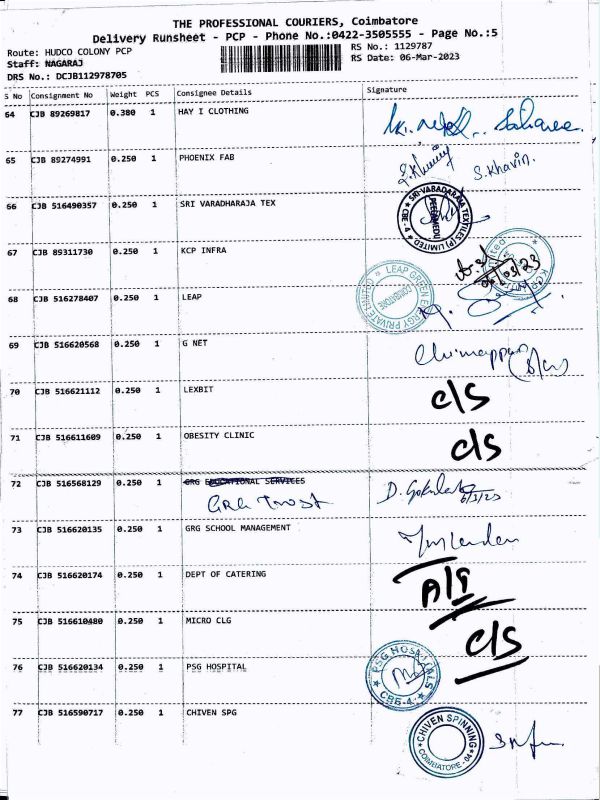 THE PROFESSIONAL COURIERS, Coimbatore
Delivery Runsheet - PCP - Phone No.:0422-3505555 - Page No.:5
Route: HUDCO COLONY PCP
RS No.: 1129787
Staff: NAGARAJ
RS Date: 06-Mar-2023
DRS No.: DCJB112978705
S No Consignment No Weight PCS Consignee Details Signature
64 CJB 89269817 0.380 1 HAY I CLOTHING
65 CJB 89274991 0.250 1 PHOENIX FAB
S.Khavin.
66 CJB 516490357 0.250 1 SRI VARADHARAJA TEX
SRI VARADARAJA TEXTILES (P) LIMITED
PEELAMEDU
CBE-4
67 CJB 89311730 0.250 1 KCP INFRA
68 CJB 516278407 0.250 1 LEAP
LEAP GREEN ENERGY PRIVATE LIMITED
COIMBATORE
69 CJB 516620568 0.250 1 G NET
70 CJB 516621112 0.250 1 LEXBIT
C/S
71 CJB 516611609 0.250 1 OBESITY CLINIC
C/S
72 CJB 516568129 0.250 1 GRG EDUCATIONAL SERVICES
GRG Trust
6/3/23
73 CJB 516620135 0.250 1 GRG SCHOOL MANAGEMENT
74 CJB 516620174 0.250 1 DEPT OF CATERING
75 CJB 516610480 0.250 1 MICRO CLG
C/S
76 CJB 516620134 0.250 1 PSG HOSPITAL
PSG HOSPITALS
CBE-4
77 CJB 516590717 0.250 1 CHIVEN SPG
CHIVEN SPINNING
COIMBATORE-04